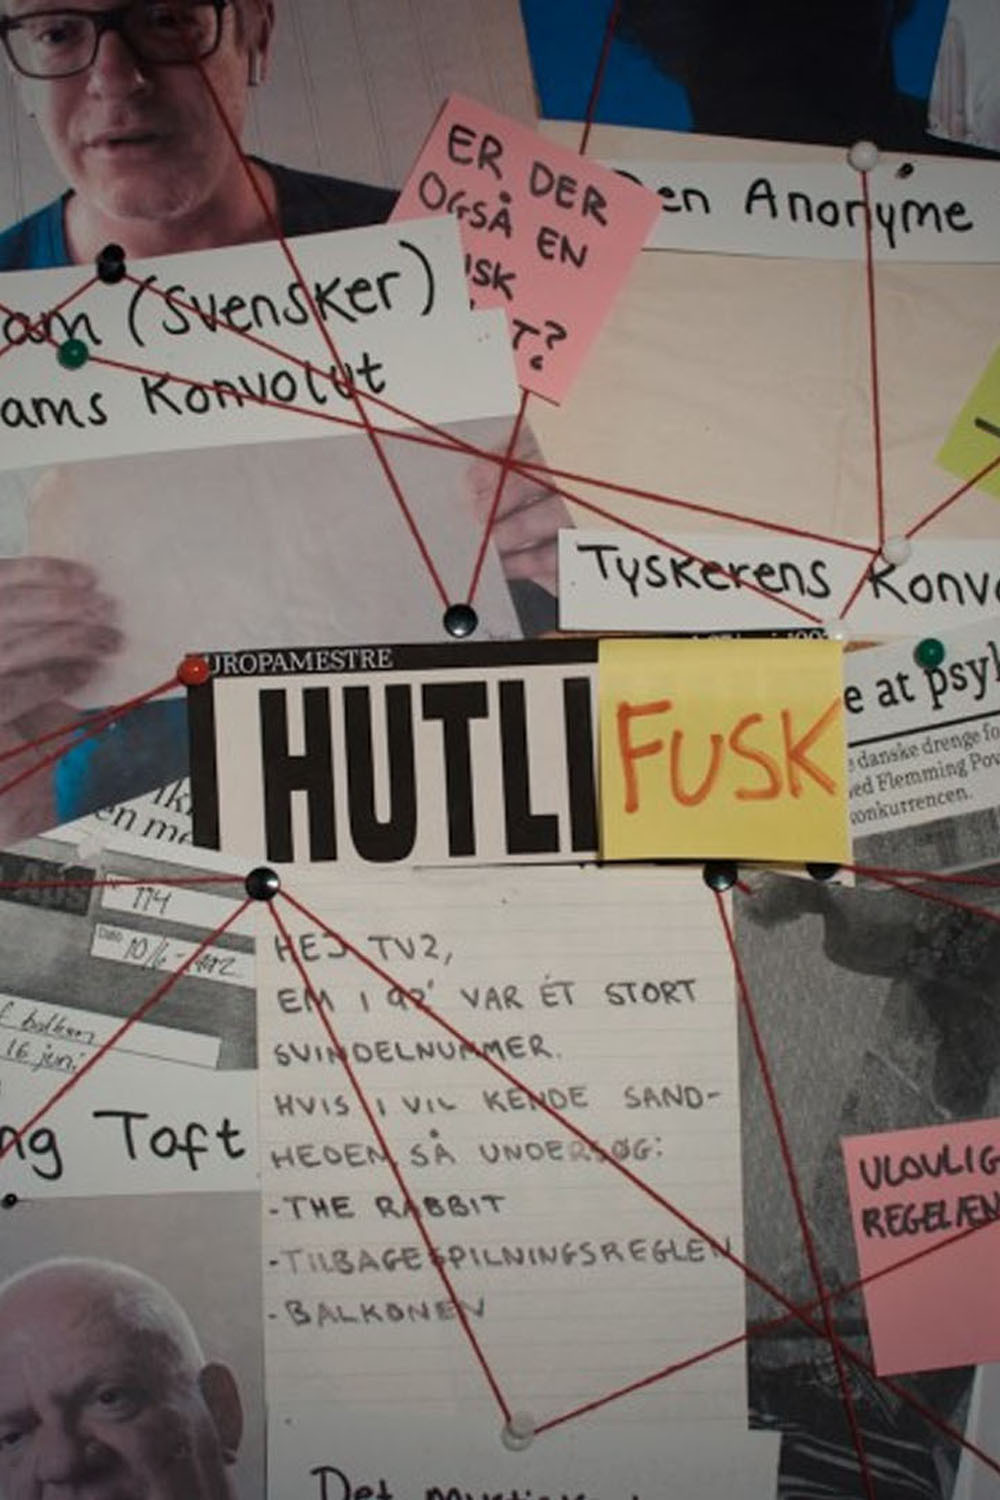 ER DER
OGSÅ EN
Den Anonyme
(Svensker)
Konvolut
Tyskerens
UROPAMESTRE
HUTLI
FUSK
e at
danske drenge
ved Flemming
konkurrencen.
en
114
10/6-1992
f balkon
16 juni
Toft
HEJ TV2,
EM I 92' VAR ÉT STORT
SVINDELNUMMER.
HVIS I VIL KENDE SAND-
HEDEN, SÅ UNDERSØG:
-THE RABBIT
-TILBAGESPILNINGSREGLEN
-BALKONEN
ULOVLIG
Det